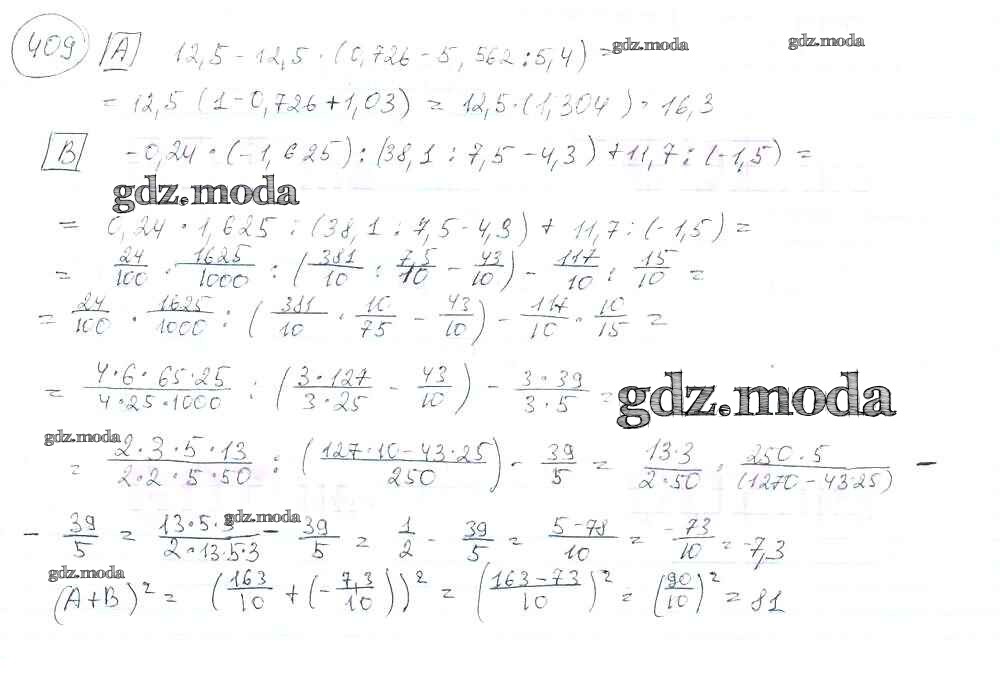 409 A 12,5 - 12,5 · (0,726 - 5,562 : 5,4) = gdz.moda gdz.moda
= 12,5 (1 - 0,726 + 1,03) = 12,5 · (1,304) = 16,3
B -0,24 · (-1,625) : (38,1 : 7,5 - 4,3) + 11,7 : (-1,5) =
gdz.moda
= 0,24 · 1,625 : (38,1 : 7,5 - 4,3) + 11,7 : (-1,5) =
= 24/100 · 1625/1000 : (381/10 : 7,5/10 - 43/10) - 117/10 : 15/10 =
= 24/100 · 1625/1000 : (381/10 · 10/75 - 43/10) - 117/10 · 10/15 =
= 4·6·65·25/4·25·1000 : (3·127/3·25 - 43/10) - 3·39/3·5 = gdz.moda
gdz.moda
= 2·3·5·13/2·2·5·50 : (127·10-43·25/250) - 39/5 = 13·3/2·50 · 250·5/(1270-43·25) -
- 39/5 = 13·5·3/2·13·5·3 - 39/5 = 1/2 - 39/5 = 5-78/10 = -73/10 = -7,3
gdz.moda
gdz.moda
(A+B)² = (163/10 + (-7,3/10))² = (163-73/10)² = (90/10)² = 81